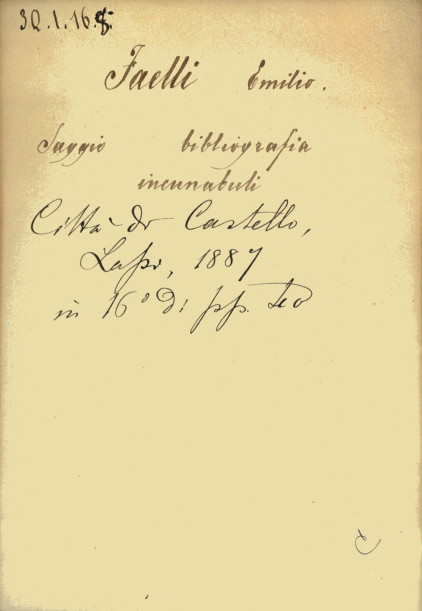 3Q.1.16.
Faelli Emilio.
Saggio bibliografia
incunabuli
Città di Castello,
Lapi, 1887
in 16° di pp.
C